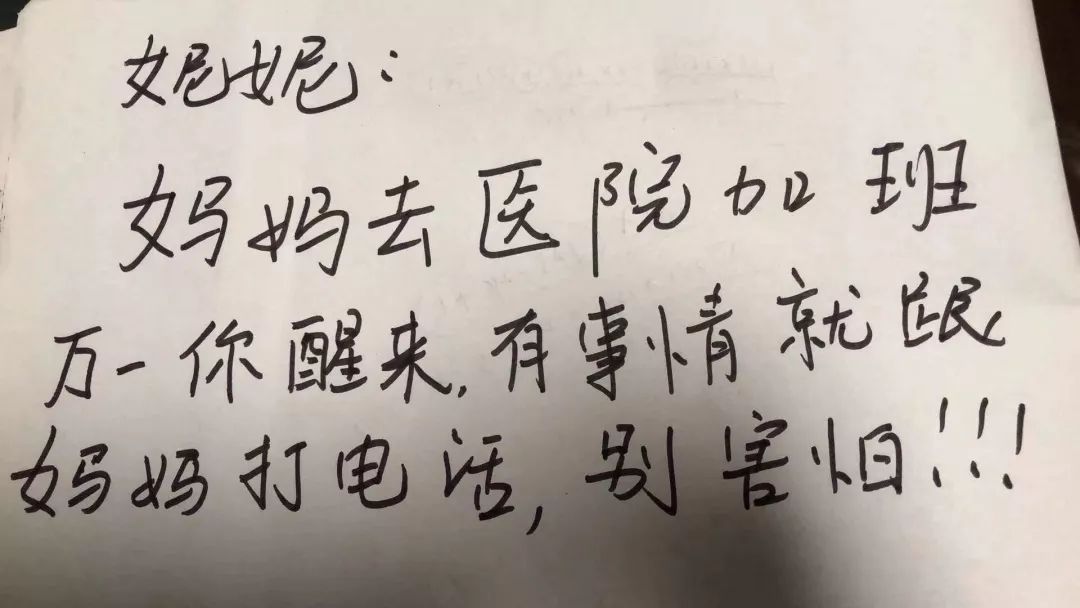 妮妮:
妈妈去医院加班
万一你醒来,有事情就跟
妈妈打电话,别害怕!!!